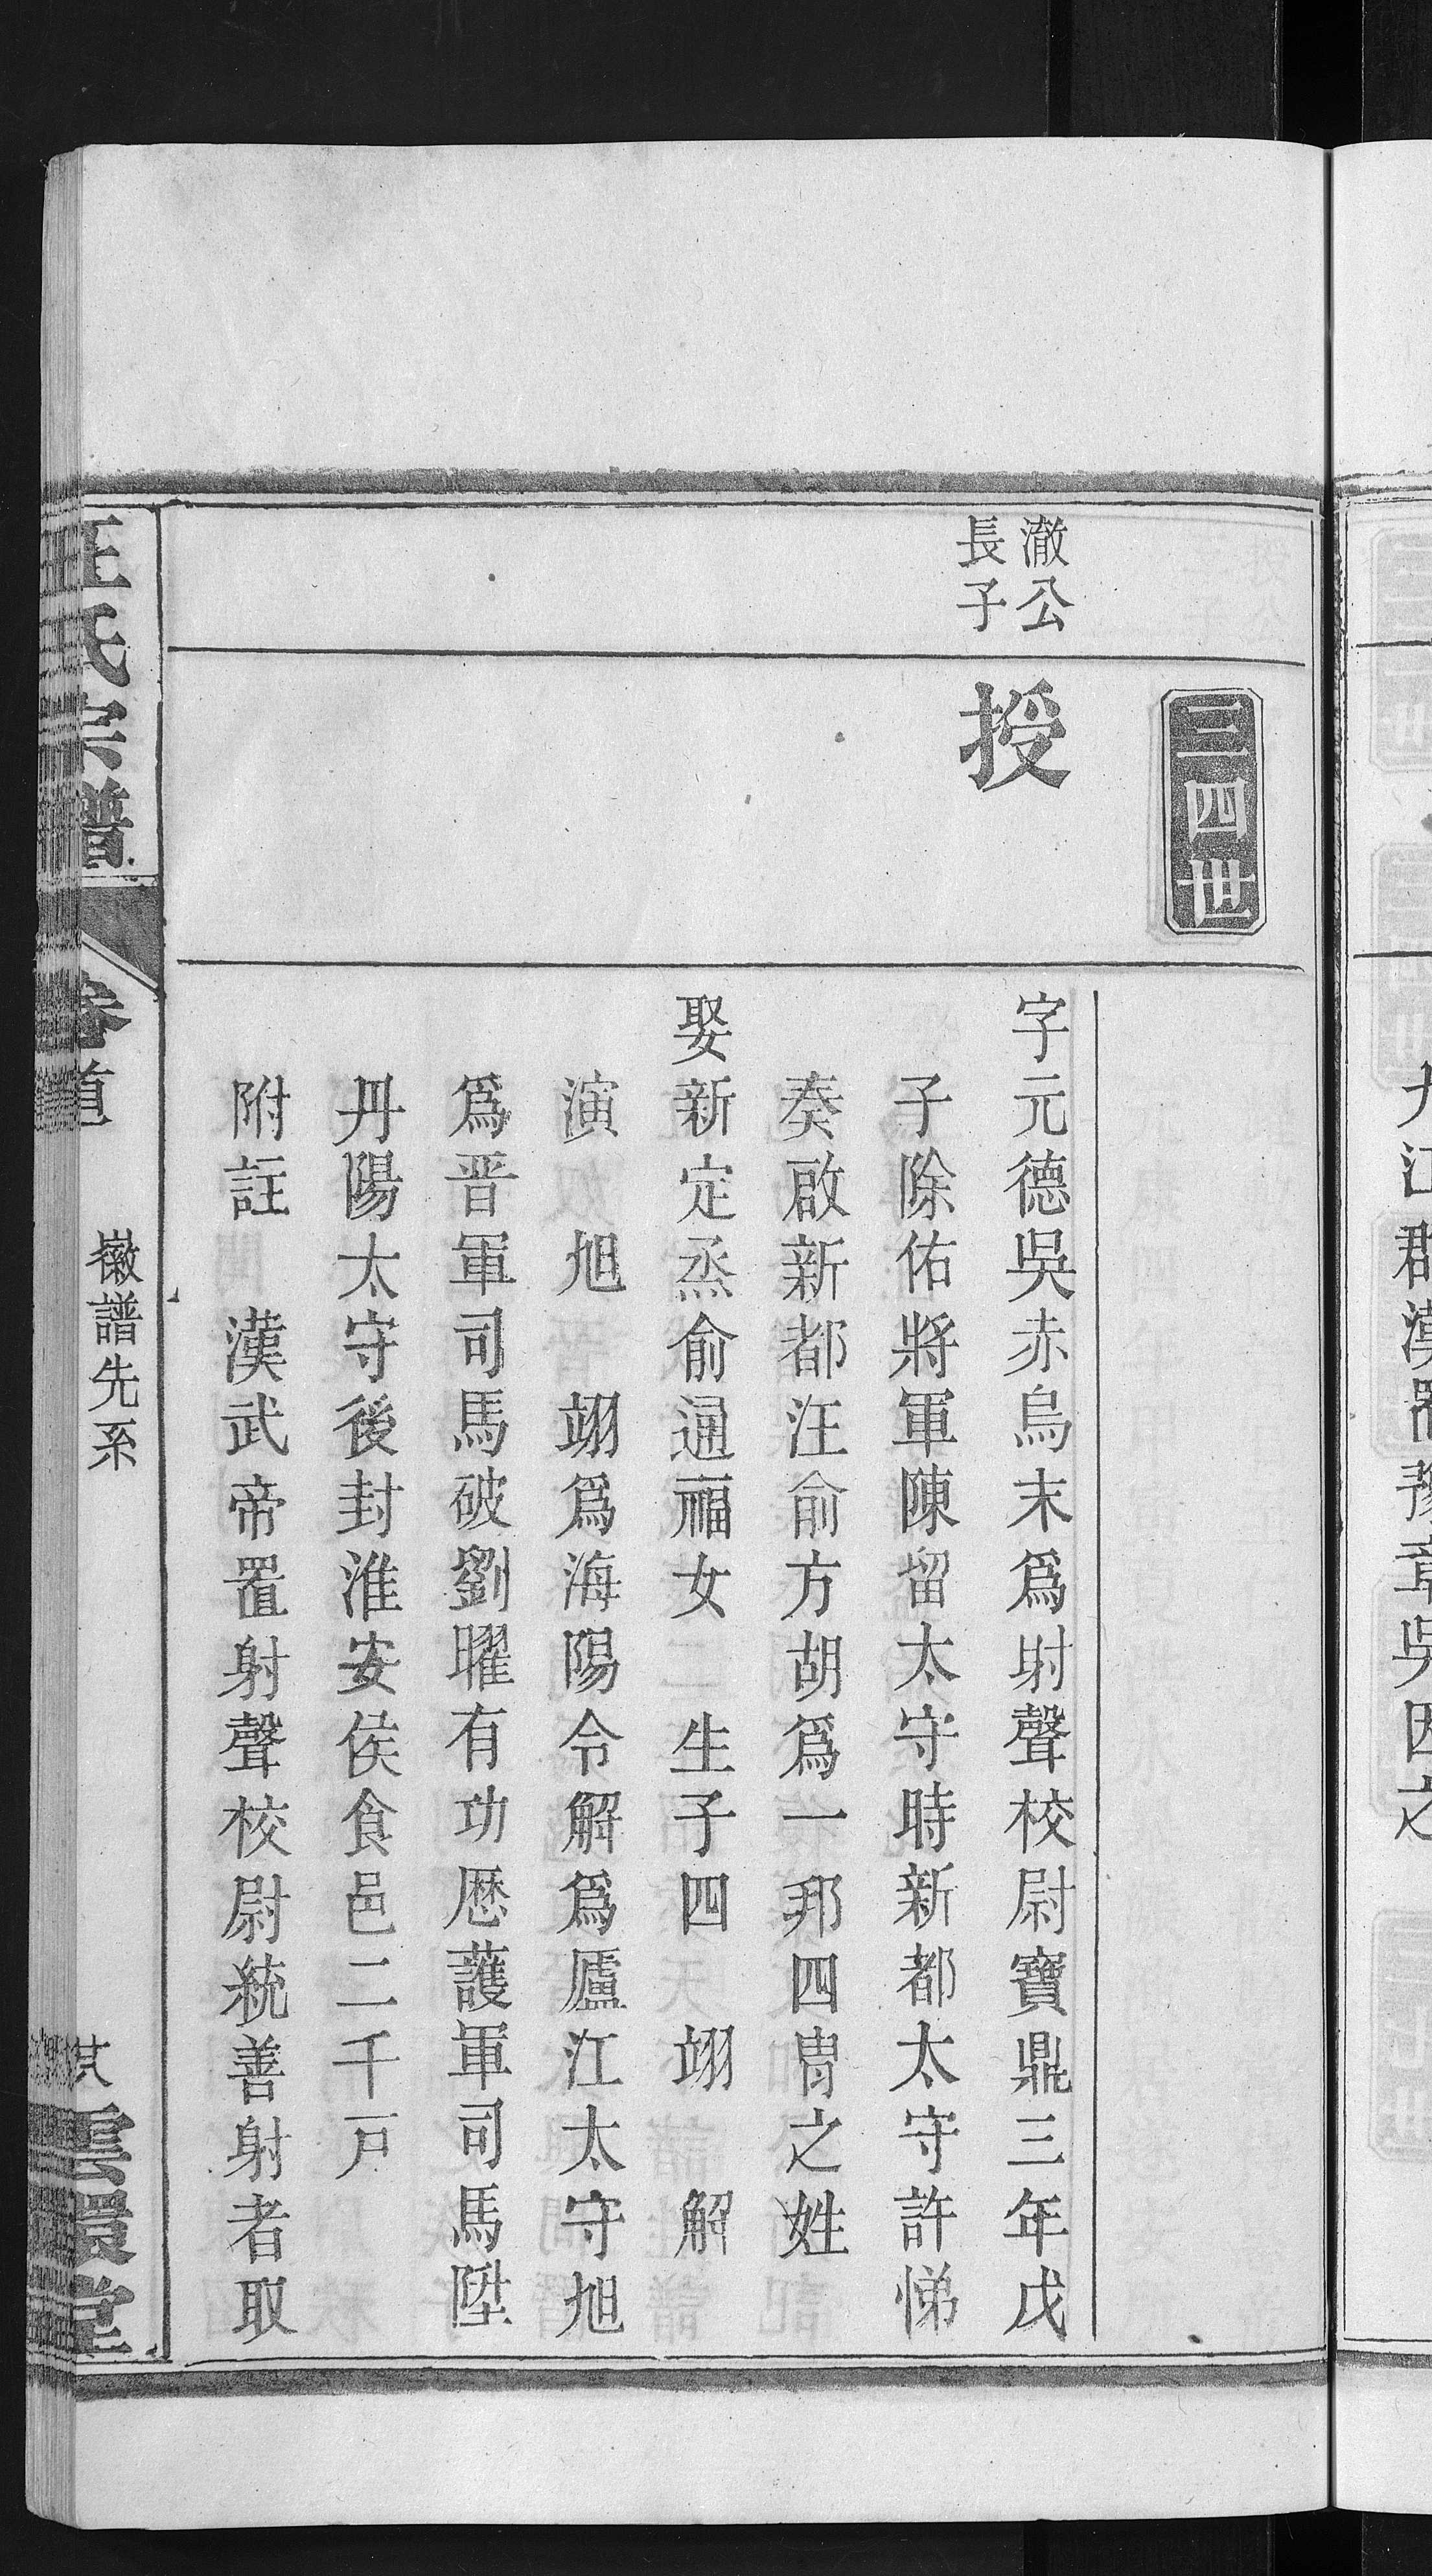 三四世
澈公
長子
授
字元德吳赤烏末爲射聲校尉寶鼎三年戊
子除佑將軍陳留太守時新都太守許悌
奏啟新都汪俞方胡爲一邦四冑之姓
娶新定烝俞通福女 生子四 翊 解
演 旭 翊爲海陽令解爲廬江太守旭
爲晋軍司馬破劉曜有功厯護軍司馬陞
丹陽太守後封淮安侯食邑二千戶
附註 漢武帝置射聲校尉統善射者取
汪氏宗譜 卷首 徽譜先系 雲環堂
九江郡漢置豫章吳因之